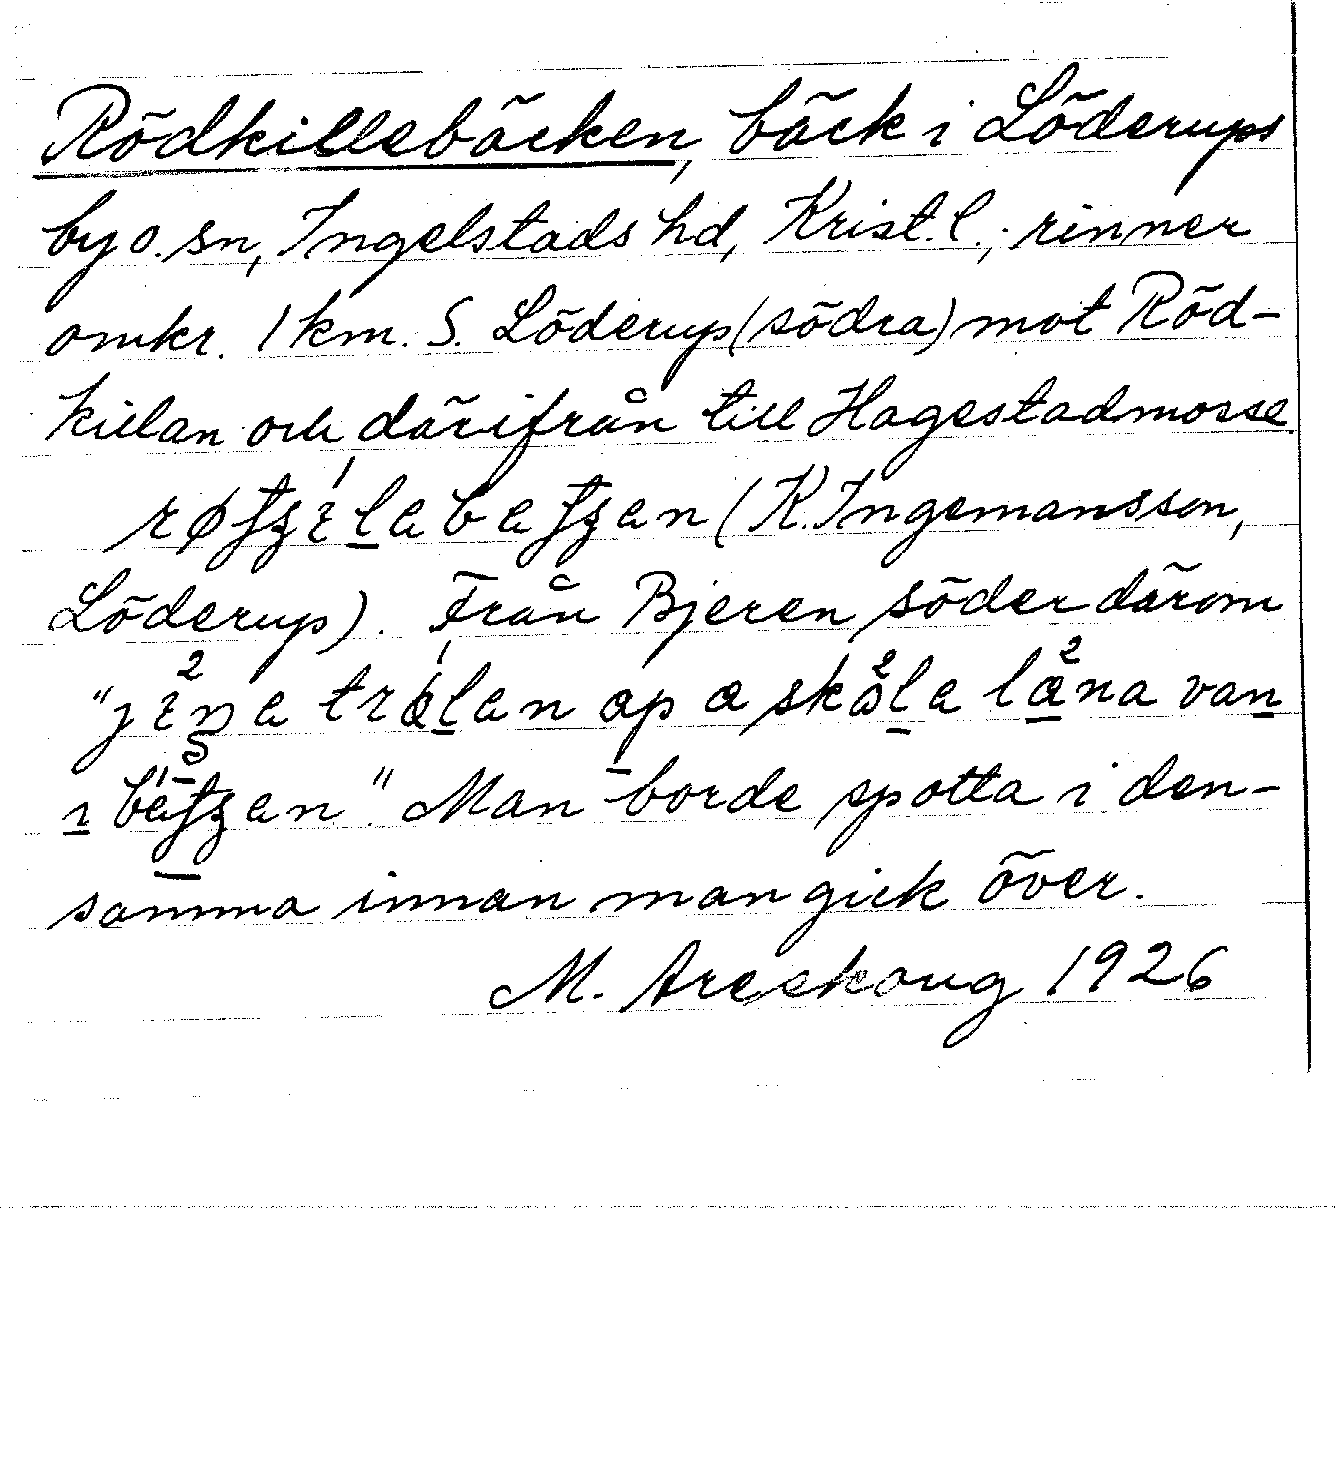 Rödkillebäcken, bäck i Löderups
by o. sn, Ingelstads hd, Krist. l.; rinner
omkr. 1 km. S. Löderup (södra) mot Röd-
killan och därifrån till Hagestadmosse.
(K. Ingemansson,
Löderup). Från Bjeren söder därom
Man borde spotta i den-
samma innan man gick över.
M. Areskoug 1926